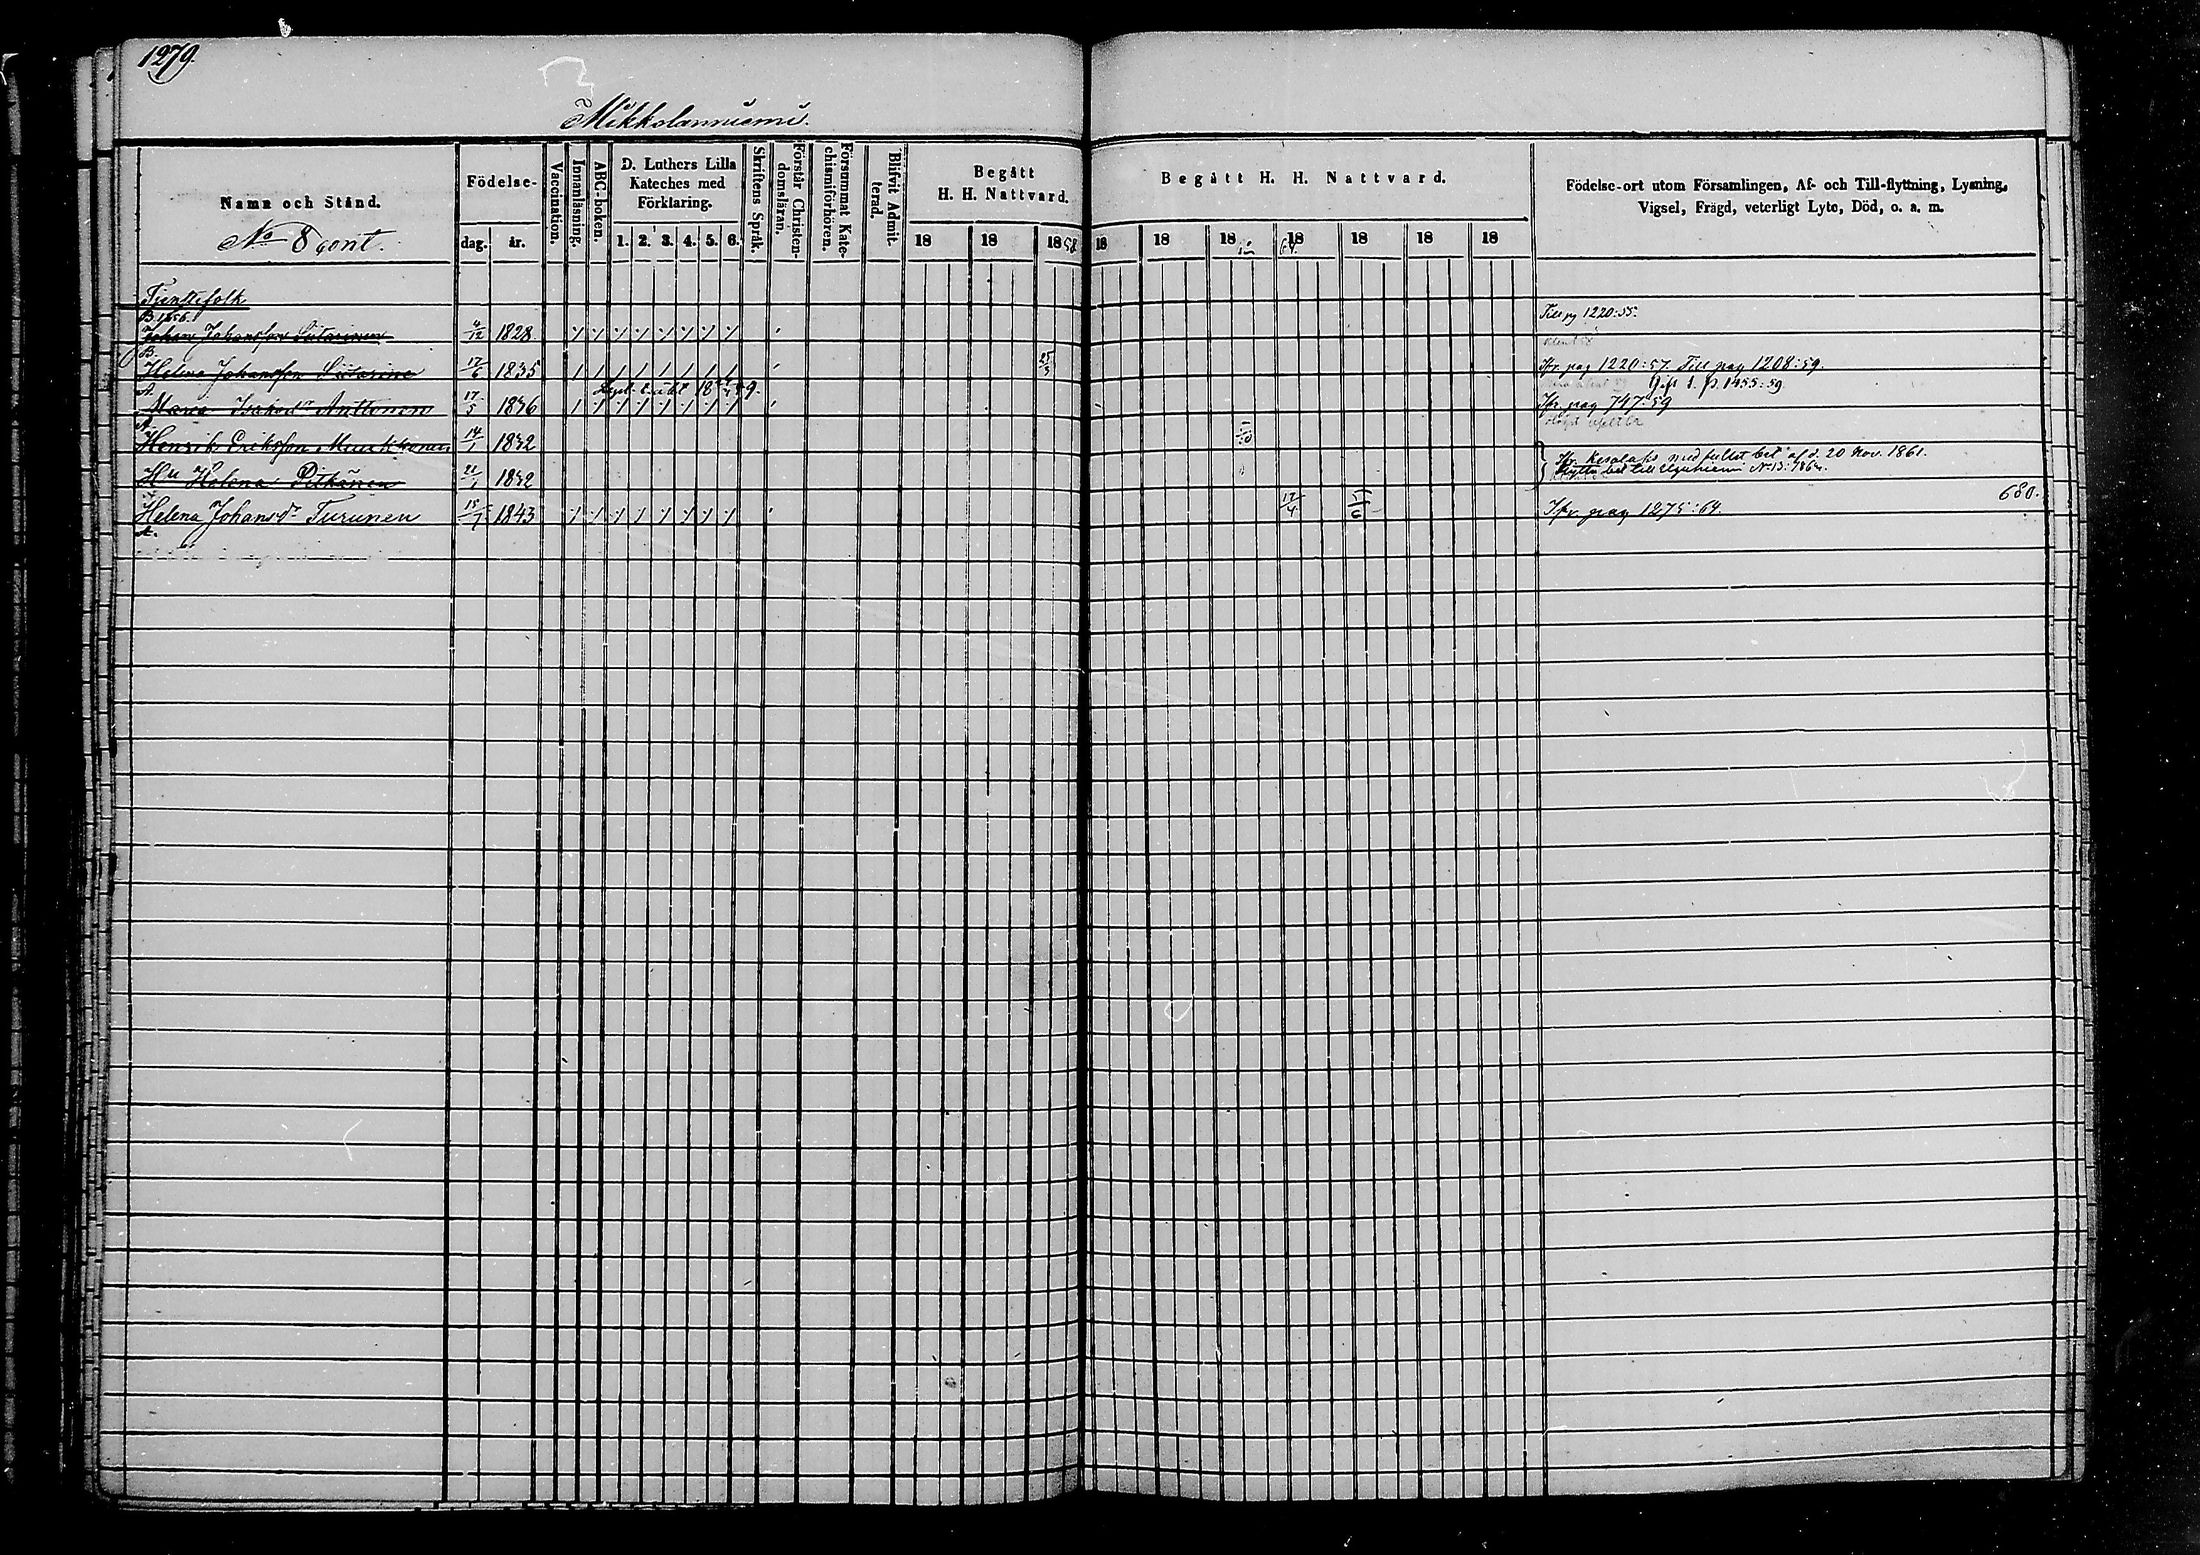 1279.
Mikkolanniemi.
Namn och Stånd.
Födelse-
Vaccination.
Innanläsning.
ABC-boken.
D. Luthers Lilla
Kateches med
Förklaring.
Skriftens Språk.
Förstår Christen-
domsläran.
Försummat Kate-
chismiförhören.
Blifvit Admit-
terad.
Begått
H. H. Nattvard.
Begått H. H. Nattvard.
Födelse-ort utom Församlingen, Af- och Till-flyttning, Lysning,
Vigsel, Frägd, veterligt Lyte, Död, o. a. m.
No 8 cont.
dag. år. 1. 2. 3. 4. 5. 6. 18 18 1858 18 18 18 1864. 18 18 18
Tjenstefolk
B 1856.
Johan Johansson Siitarinen 4/12 1828. Till pag 1220:55.
B.
Helena Johansson Siitarine 17/6 1835 25/3 Ifr. pag 1220:57. Till pag 1208:59.
A. Gift s. p. 1455:59
Maria Isaksdr Anttonen 17/5 1836 Ifr pag 747:59
A.
Henrik Eriksson Mustikonen 14/1 1832 Ifr. Kesälaks med bet af d. 20 Nov. 1861.
Hu Helena Pitkänen 21/1 1832
680.
Helena Johansdr Turunen 15/7 1843 17/4 Ifr. pag 1275:64.
A.